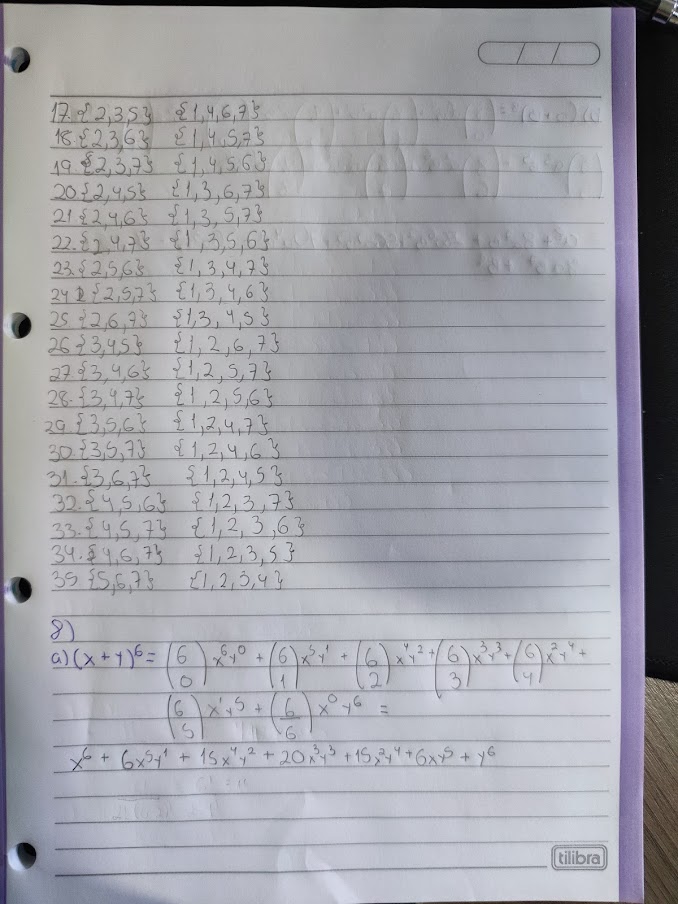 17. {2,3,5} {1,4,6,7}
18. {2,3,6} {1,4,5,7}
19. {2,3,7} {1,4,5,6}
20. {2,4,5} {1,3,6,7}
21. {2,4,6} {1,3,5,7}
22. {2,4,7} {1,3,5,6}
23. {2,5,6} {1,3,4,7}
24. {2,5,7} {1,3,4,6}
25. {2,6,7} {1,3,4,5}
26. {3,4,5} {1,2,6,7}
27. {3,4,6} {1,2,5,7}
28. {3,4,7} {1,2,5,6}
29. {3,5,6} {1,2,4,7}
30. {3,5,7} {1,2,4,6}
31. {3,6,7} {1,2,4,5}
32. {4,5,6} {1,2,3,7}
33. {4,5,7} {1,2,3,6}
34. {4,6,7} {1,2,3,5}
35. {5,6,7} {1,2,3,4}
8)
a) (x+y)⁶ = (6 0) x⁶y⁰ + (6 1) x⁵y¹ + (6 2) x⁴y² + (6 3) x³y³ + (6 4) x²y⁴ +
(6 5) x¹y⁵ + (6 6) x⁰y⁶ =
x⁶ + 6x⁵y¹ + 15x⁴y² + 20x³y³ + 15x²y⁴ + 6xy⁵ + y⁶
tilibra